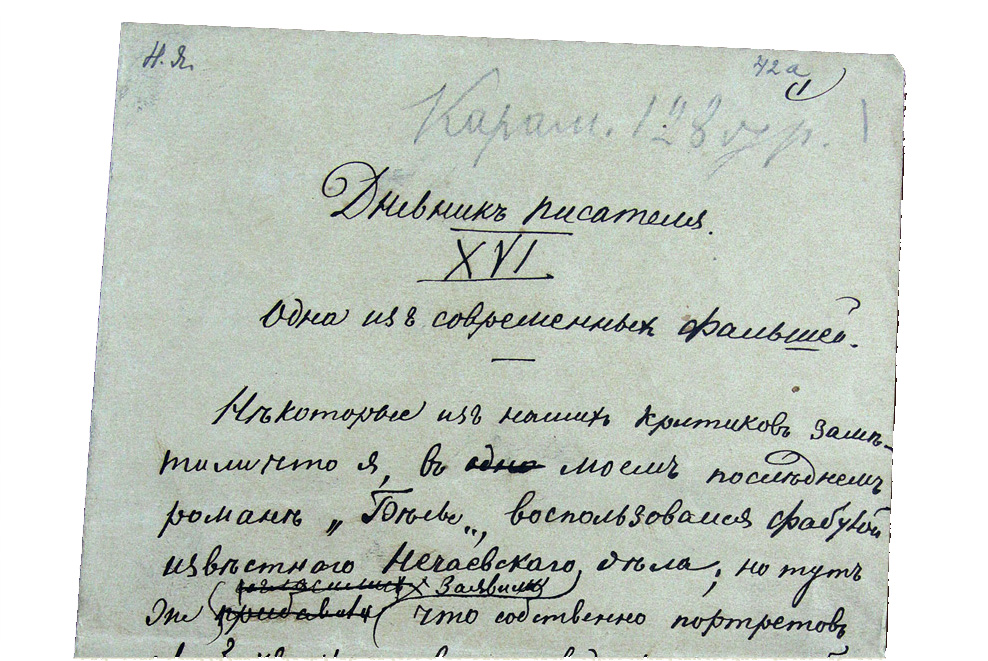 Н. Я.
42а
Карам. 128
Дневникъ писателя.
XVI.
Одна изъ современныхъ фальшей.
Нѣкоторые изъ нашихъ критиковъ замѣ-
тили что я, въ одно моемъ послѣднемъ
романѣ „Бѣсы“, воспользовался фабулой
извѣстнаго Нечаевскаго дѣла; но тутъ
заявили
же что собственно портретовъ